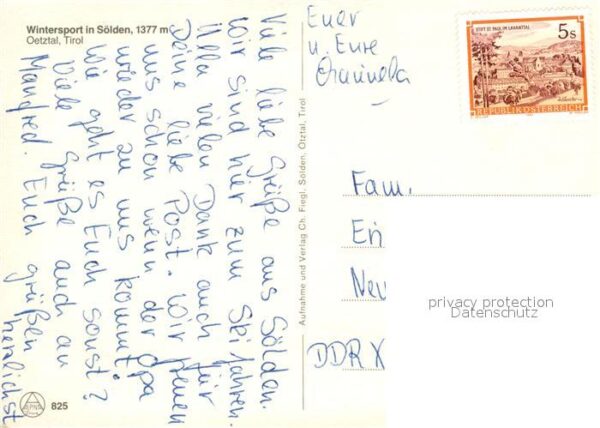 Wintersport in Sölden, 1377 m
Oetztal, Tirol
Viele liebe Grüße aus Sölden.
Wir sind hier zum Skifahren.
Ulla vielen Dank auch für
Deine liebe Post. Wir freuen
uns schon wenn der Opa
wieder zu uns kommt!
Wie geht es Euch sonst?
Viele Grüße auch an
Manfred. Euch grüßen
herzlichst
Euer
u. Eure
Aufnahme und Verlag Ch. Fiegl, Sölden, Ötztal, Tirol
STIFT ST. PAUL IM LAVANTTAL
5s
REPUBLIK ÖSTERREICH
Fam.
Eri
Neu
DDR X
privacy protection
Datenschutz
825